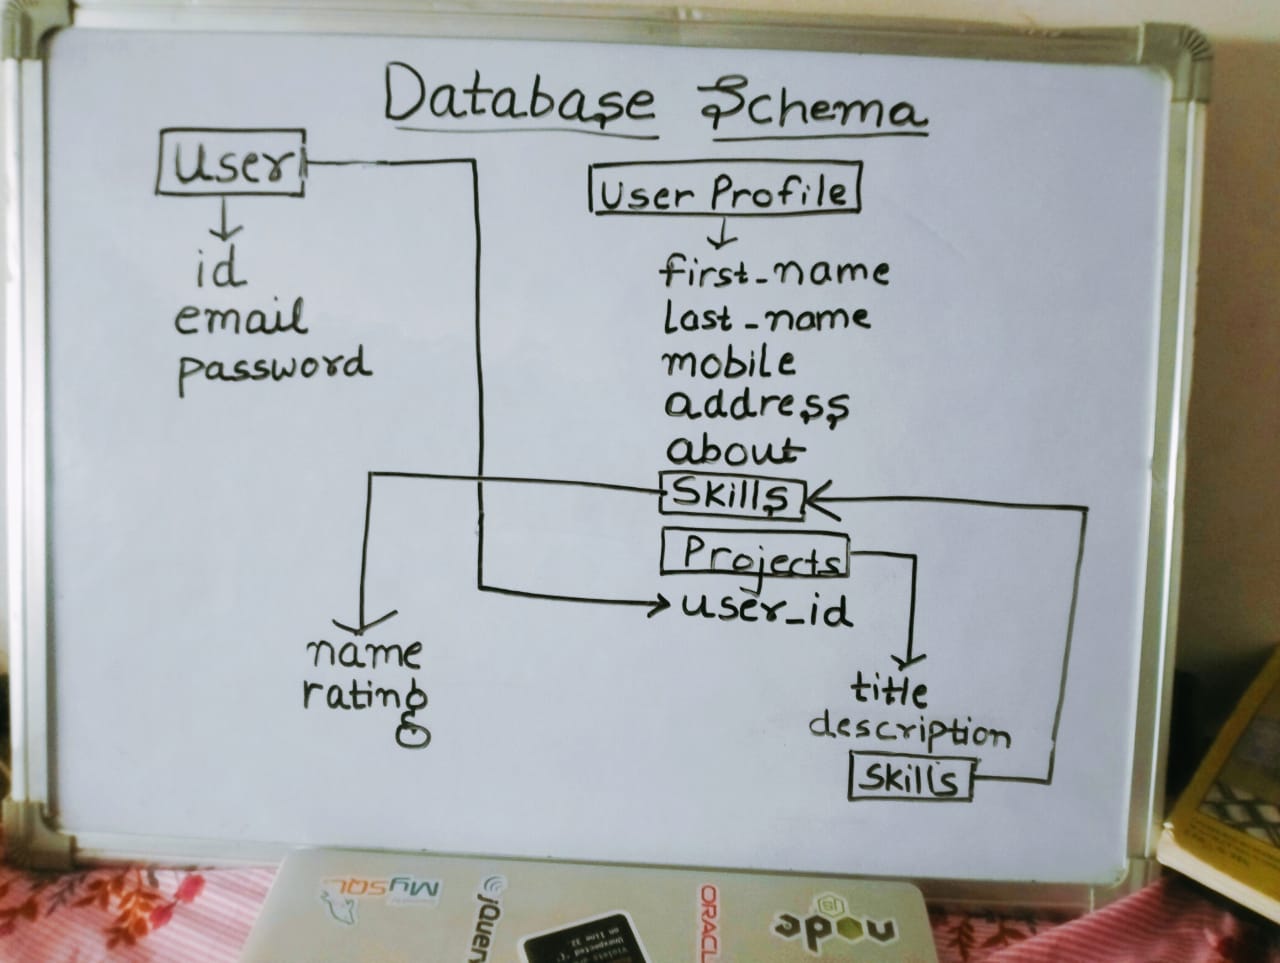 Database Schema
User
id
email
password
User Profile
first_name
last_name
mobile
address
about
Skills
Projects
user_id
name
rating
title
description
Skills
MySQL
jQuery
ORACL
node
JS